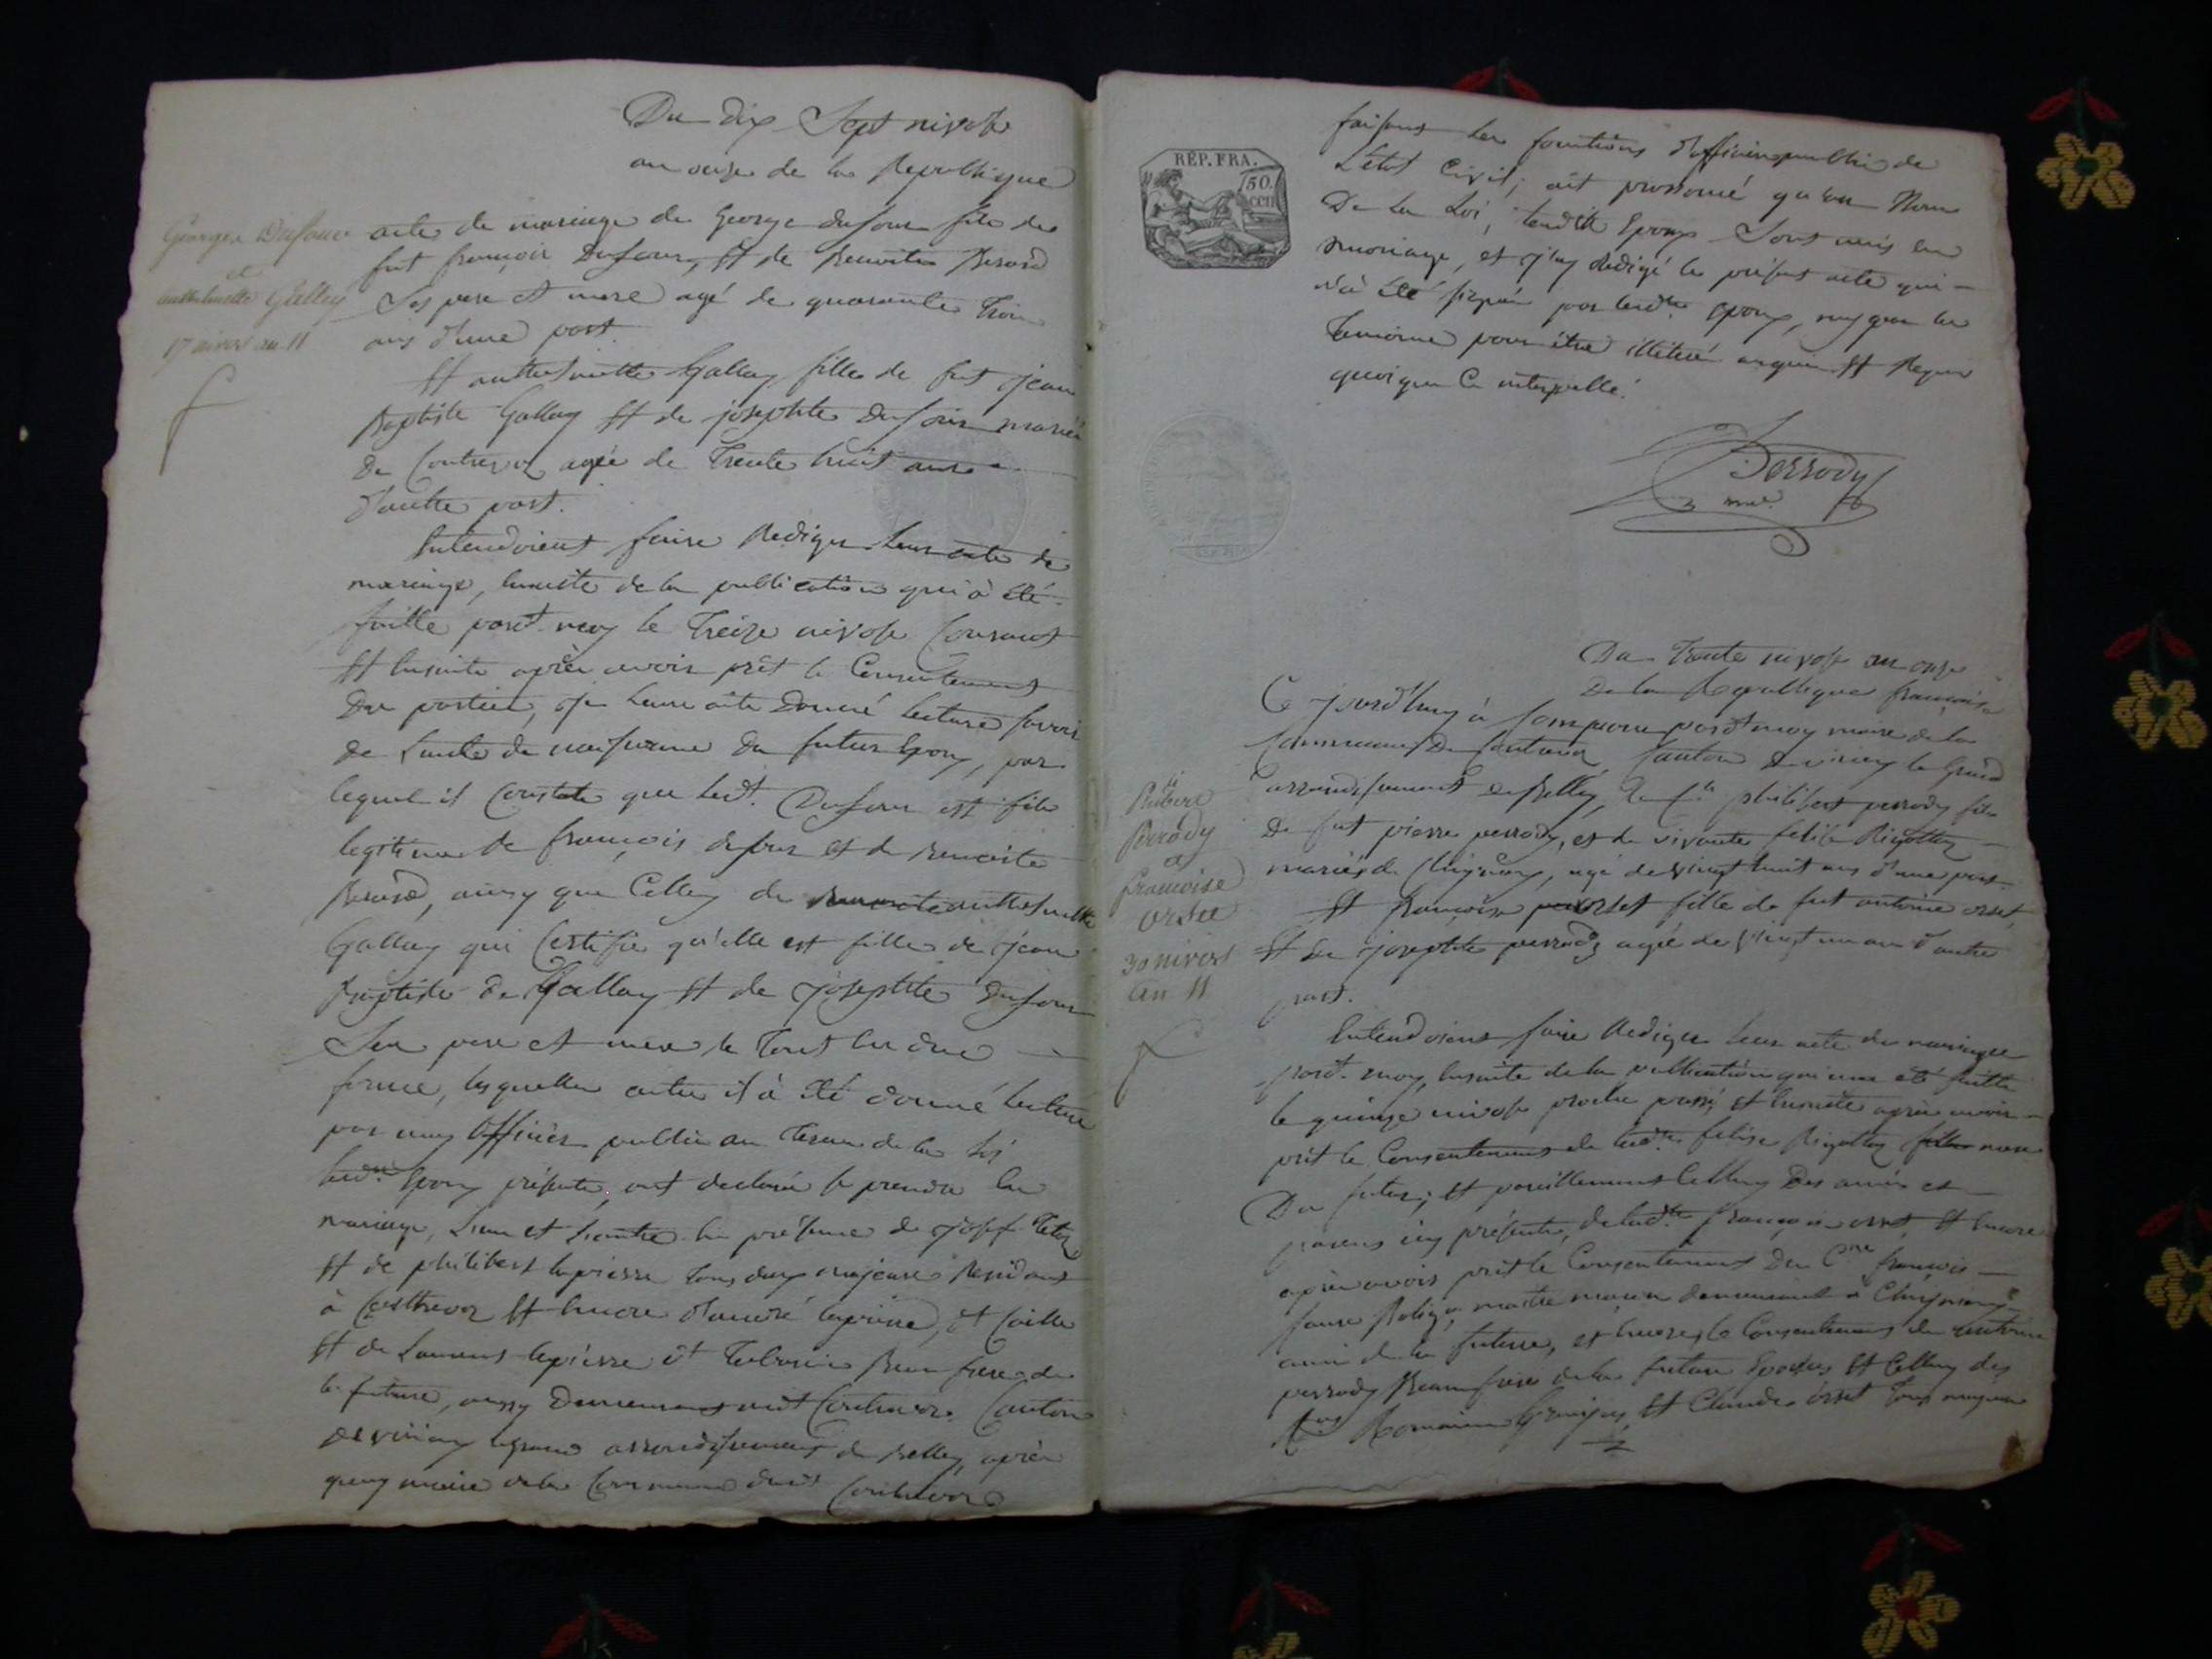 Du dix Sept nivose
an onze de la Republique
George Dufour
et
anthelmette Gallay
17 nivos an 11
acte de mariage de George dufour fils de
fut françois Dufour, Et de benoite Berard
Ses pere et mere agé de quarante Trois
ans d'une part
Et anthelmette Gallay fille de fut jean
Baptiste Gallay Et de josephte Dufour mariés
de Contrevoz agée de Trente huit ans
d'autre part.
Intendoient faire Rediger Leur acte de
mariage, ensuite de la publication qui à été
faitte pardt. moy le Treize nivose Courant
Et ensuite après avoir prêt le Consentement
des parties, je Leur aite Donné lecture savoir
de Lacte de naissance du futur Epoux, par
lequel il Conste que ledt. Dufour est fils
legitime de françois dufour et de benoite
Berard, ainsy que Celluy de anthelmette
Gallay qui Certifie qu'elle est fille de jean
Baptiste de Gallay Et de josephte Dufour
Ses pere et mere le Tout en due
forme, lesquelles actes il à été donné lecture
par moy Officier public au Terme de la Loi
lesdts. Epoux présents, ont declaré se prendre en
mariage, L'un et L'autre en présence de josef
Et de philibert lapierre Tous deux majeurs Residant
à Contrevoz Et encore d'andré lapierre, et
Et de Laurent lapierre et beau frere de
la future, aussy Demeurant audt Contrevoz Canton
de virieu legrand arrondissement de Belley, après
quoy maire de la Commune dudt Contrevoz
RÉP. FRA.
50.
CEN
faisant les fonctions d'officier public de
L'état Civil, ait prononcé qu'au Nom
De la Loi, lesdits Epoux Sont unis en
mariage, et j'ay Redigé le présent acte qui
n'à été signé par lesdts. epoux, ny par les
Temoins pour être illiterés enquis Et Requis
quoique Ce interpellé.
Perrody
mre
Du Trente nivose an onze
De la Republique française
Philibert
Perrody
et
françoise
orset
30 nivos
an 11
Ce jourd'huy à Comparu pardt moy maire de la
Commune De Contrevoz, Canton de virieu le Grand
arrondissement de Belley, Le Cn philibert perrody fils
De fut pierre perrody, et de vivante felise Rigollet
mariés de Cheignieu, agé de vingt huit ans d'une part.
Et françoise orset fille de fut antoine orset,
Et de josephte perrody agée de vingt un an d'autre
part.
Intendoient faire Rediger Leur acte de mariage
pardt. moy, ensuite de la publication qui une été faitte
le quinze nivose proche passé et ensuite après avoir
prêt le Consentement de ladte. felise Rigollet mere
Du futur, Et pareillement Celluy Des amis et
parens icy présents, de ladte françoise orset, Et encore
après avoir prêt le Consentement Du Cne françois
maitre maçon demeurant à Cheignieu
ami de la future, et encore le Consentement de antoine
perrody Beau frere de la future Epouse Et Celluy des
Cns Romain Et Claude orset Tous majeurs